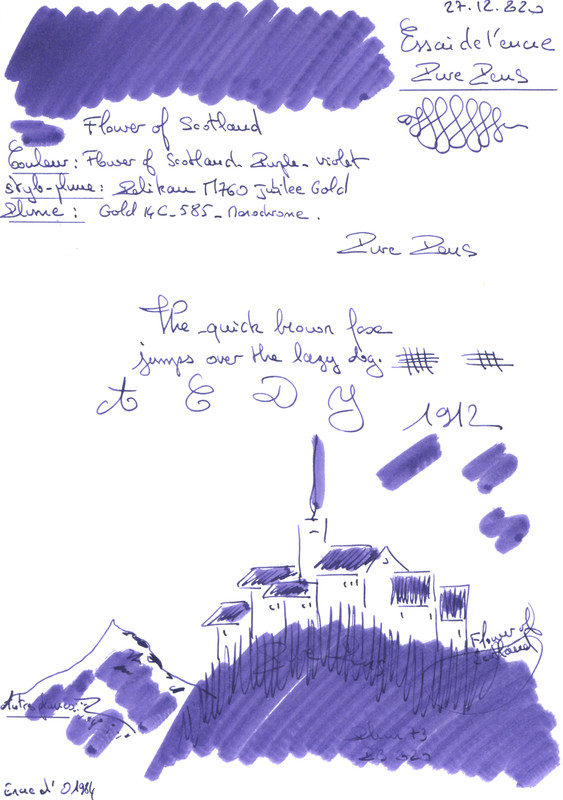 27.12.2020
Essai de l'encre
Pure Pens
Flower of Scotland
Couleur : Flower of Scotland Purple-violet
Stylo-plume : Pelikan M760 Jubilee Gold
Plume : Gold 14C-585-Monochrome.
Pure Pens
The quick brown fox
jumps over the lazy dog.
A E D Y
1912
Flower of
Scotland
Autres plumes :